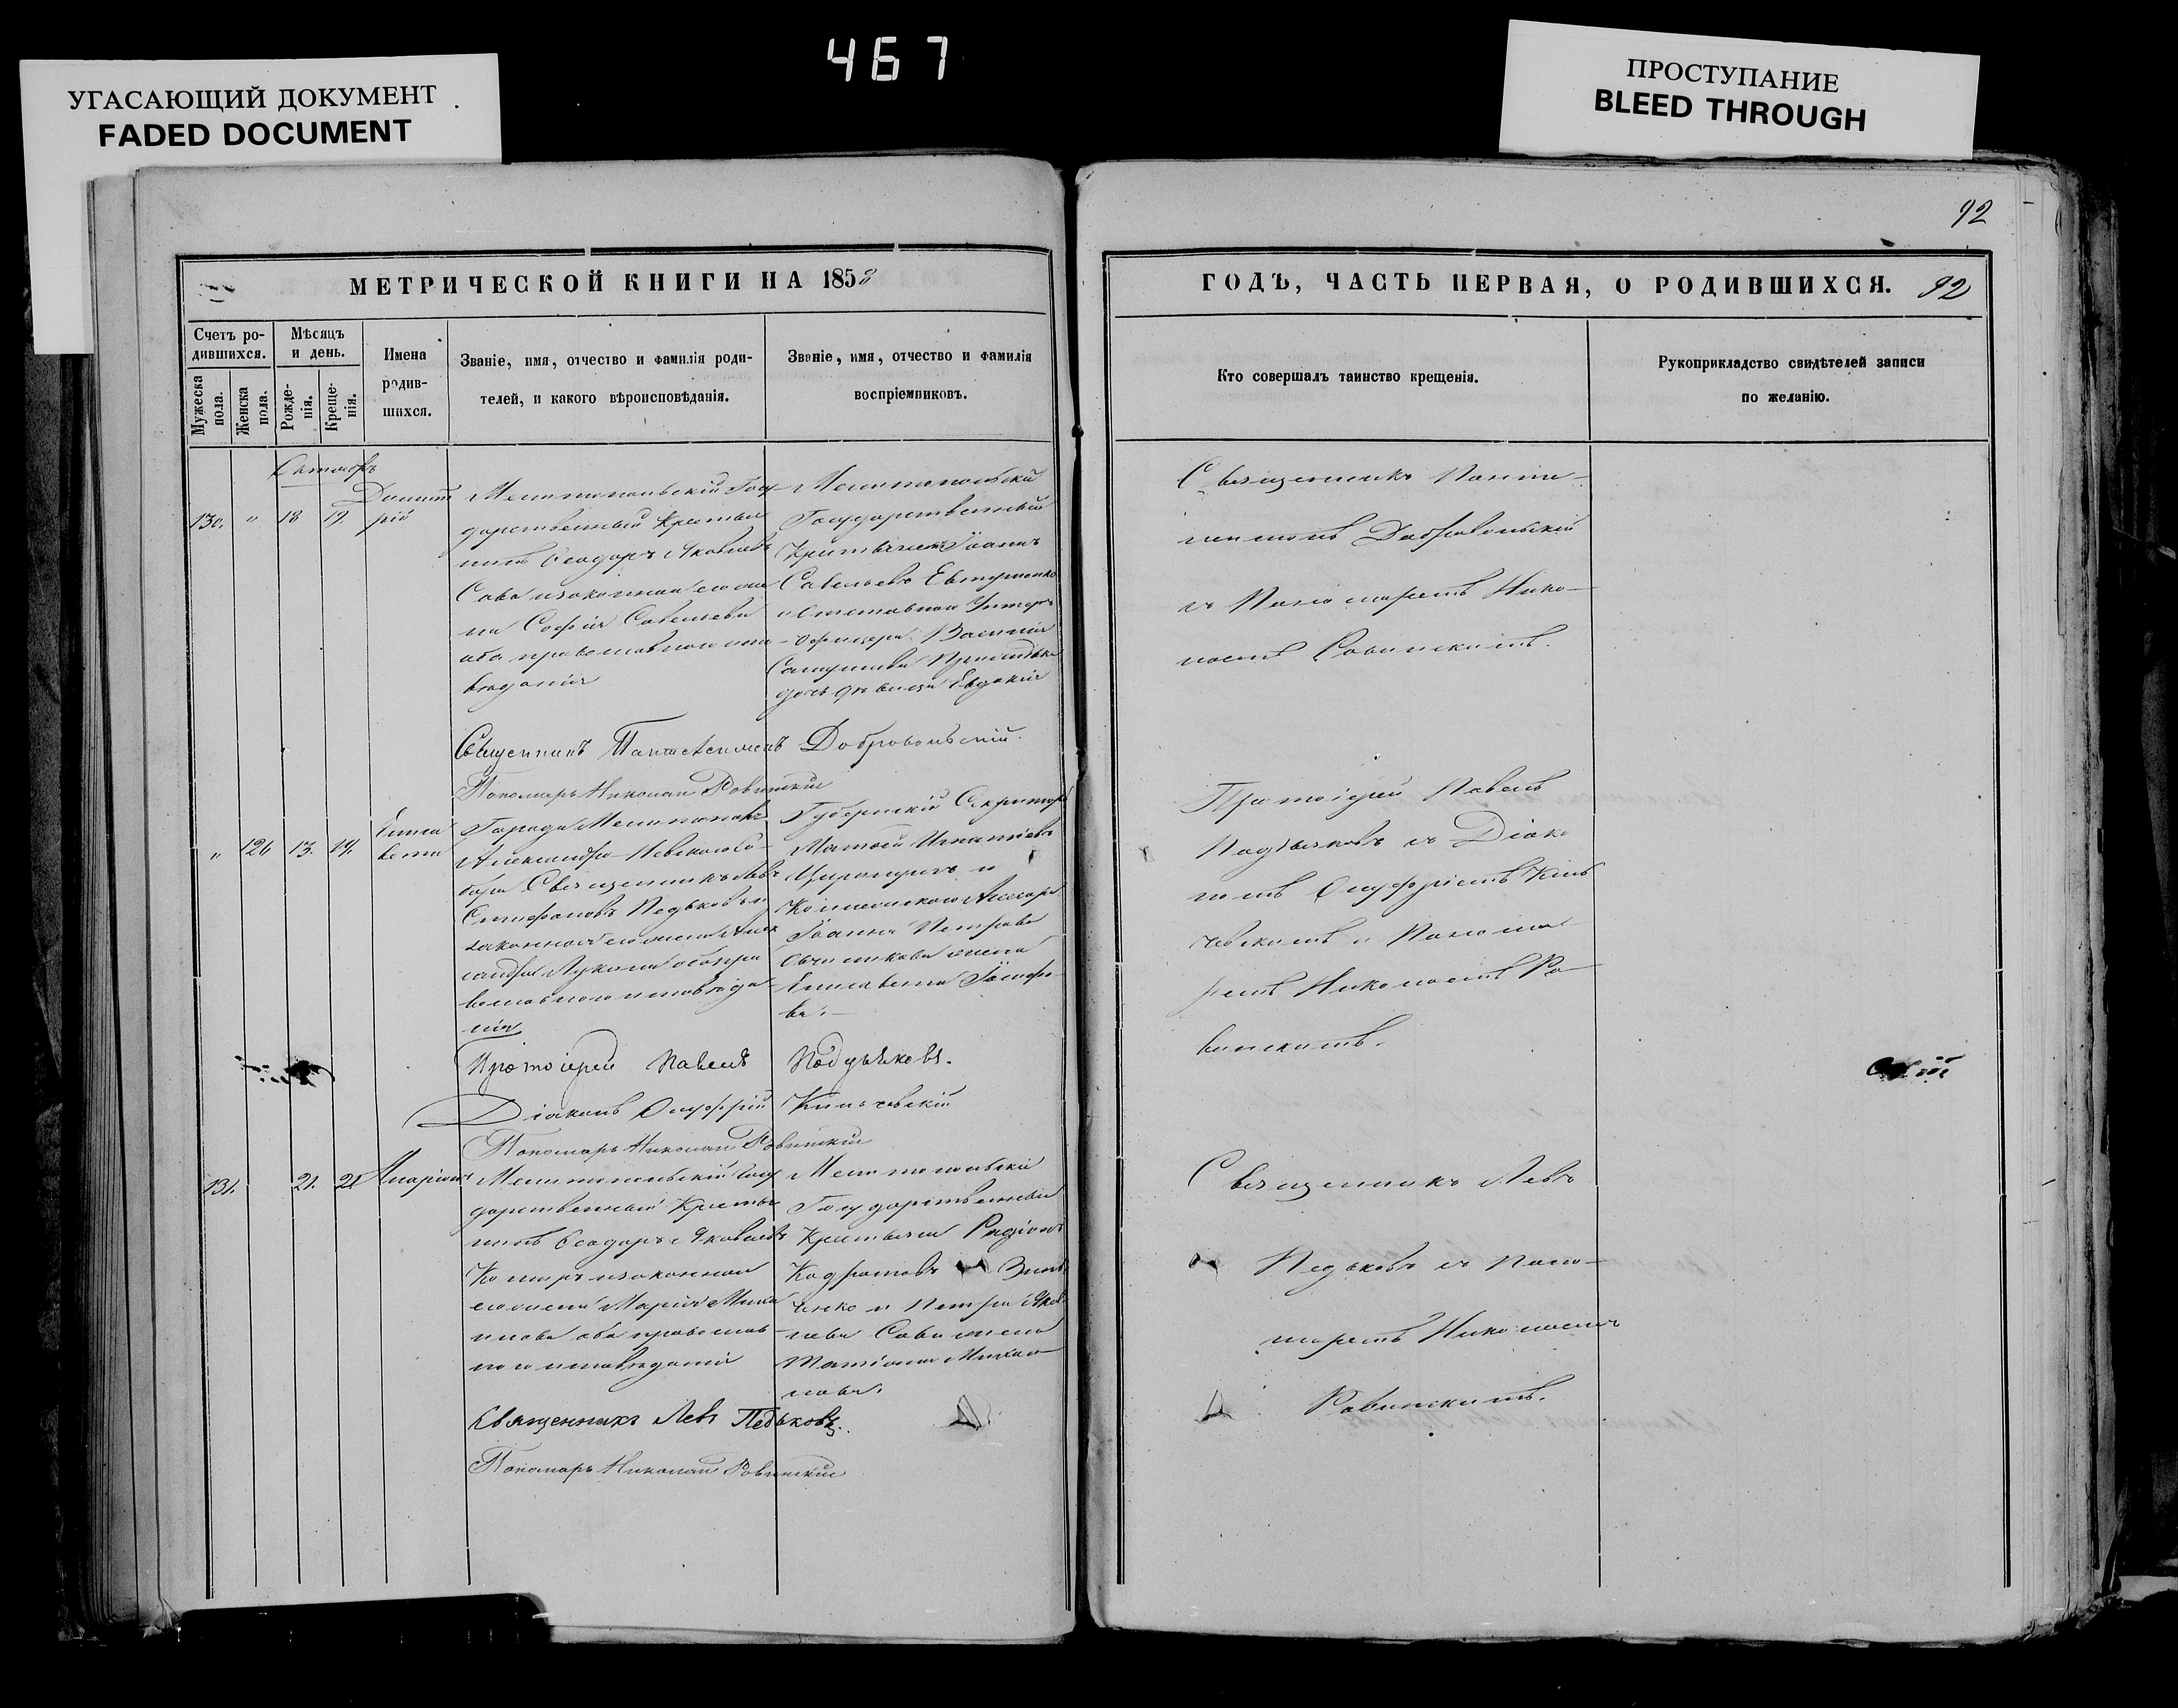 467
УГАСАЮЩИЙ ДОКУМЕНТ
FADED DOCUMENT
ПРОСТУПАНИЕ
BLEED THROUGH
92
МЕТРИЧЕСКОЙ КНИГИ НА 1853
Счетъ ро-
дившихся.
Мужеска
пола.
Женска
пола.
Мѣсяцъ
и день.
Рожде-
нія.
Креще-
нія.
Имена
родив-
шихся.
Званіе, имя, отчество и фамилія роди-
телей, и какого вѣроисповѣданія.
Званіе, имя, отчество и фамилія
воспріемниковъ.
130. " 18 19.
Димит
рій
Мелитопольскій Госу
дарственный Крестья
нинъ Ѳеодоръ Яковлевъ
Сова и законная его же
на Софія Савельева
оба православнаго испо
вѣданія
Мелитопольскій
Государственный
Крестьянинъ Іоаннъ
Савельевъ Евтушенко
и отставнаго Унтеръ
офицера Василія
дочь дѣвица Евдокія
Священникъ Пантелеимонъ Добровольскій.
Пономарь Николай Ровинскій
" 126 13. 19.
Елиса
вета
Города Мелитополя
Александро-Невскаго Со-
бора Священникъ Левъ
Стефановъ Педьковъ и
законная его жена Алек
сандра Лукина оба пра
вославнаго исповѣда
нія
Губернскій Секретарь
Матѳей Игнатіевъ
и
Коллежскаго Ассесора
Іоанна Петрова
Овчинникова жена
Елисавета Іосифо-
ва.
Протоіерей Павелъ Поддьяковъ.
Діаконъ Онуфрій Кильчевскій
Пономарь Николай Ровинскій
131. 21. 21
Иларіонъ
Мелитопольскій Госу
дарственный Крестья
нинъ Ѳеодоръ Яковлевъ
и законная
его жена Марія Миха
илова оба православ
наго исповѣданія
Мелитопольскій
Государственный
Крестьянинъ Родіонъ
Кодратовъ Зин
ченко и Петра Яков
лева Совы жена
Татіана Михаи
лова.
Священникъ Левъ Педьковъ.
Пономарь Николай Ровинскій
ГОДЪ, ЧАСТЬ ПЕРВАЯ, О РОДИВШИХСЯ. 92
Кто совершалъ таинство крещенія.
Рукоприкладство свидѣтелей записи
по желанію.
Священникъ Панте-
леимонъ Добровольскій
съ Пономаремъ Нико-
лаемъ Ровинскимъ.
Протоіерей Павелъ
Поддьяковъ съ Діако
номъ Онуфріемъ Киль
чевскимъ и Понома
ремъ Николаемъ Ро
винскимъ.
Священникъ Левъ
Педьковъ съ Поно-
маремъ Николаемъ
Ровинскимъ.